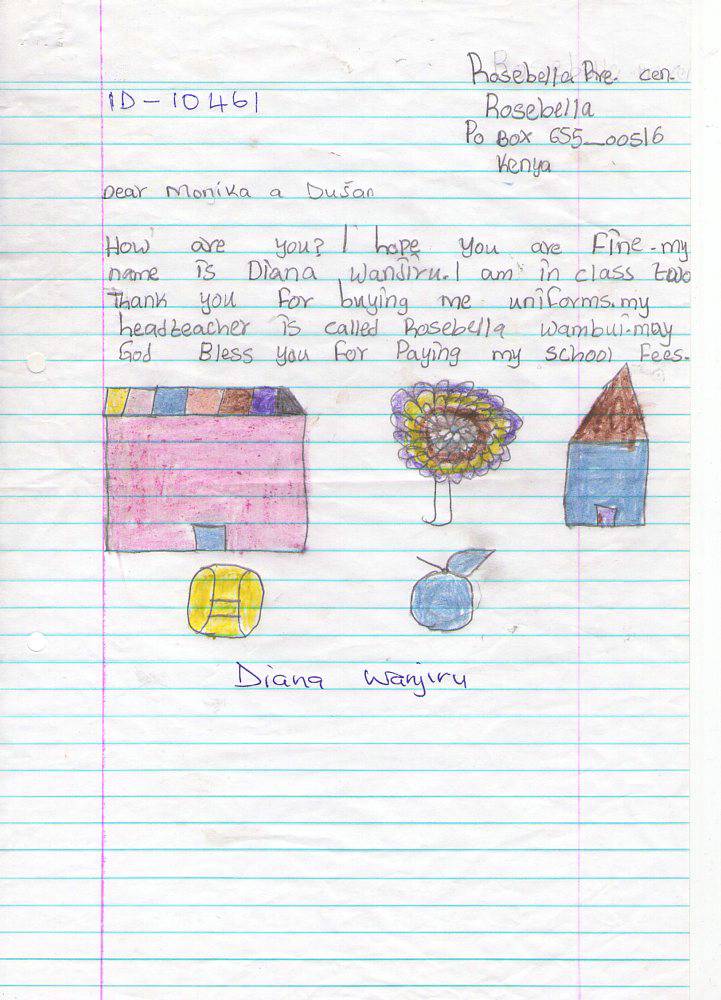 Rosebella Pre. cen.
ID-10461
Rosebella
Po Box 655_00516
Kenya
Dear Monika a Dušan
How are you? I hope you are Fine.my
name is Diana wanjiru.I am in class two
Thank you For buying me uniforms.my
headteacher is called Rosebella wambui.may
God Bless you For Paying my school Fees.
Diana wanjiru